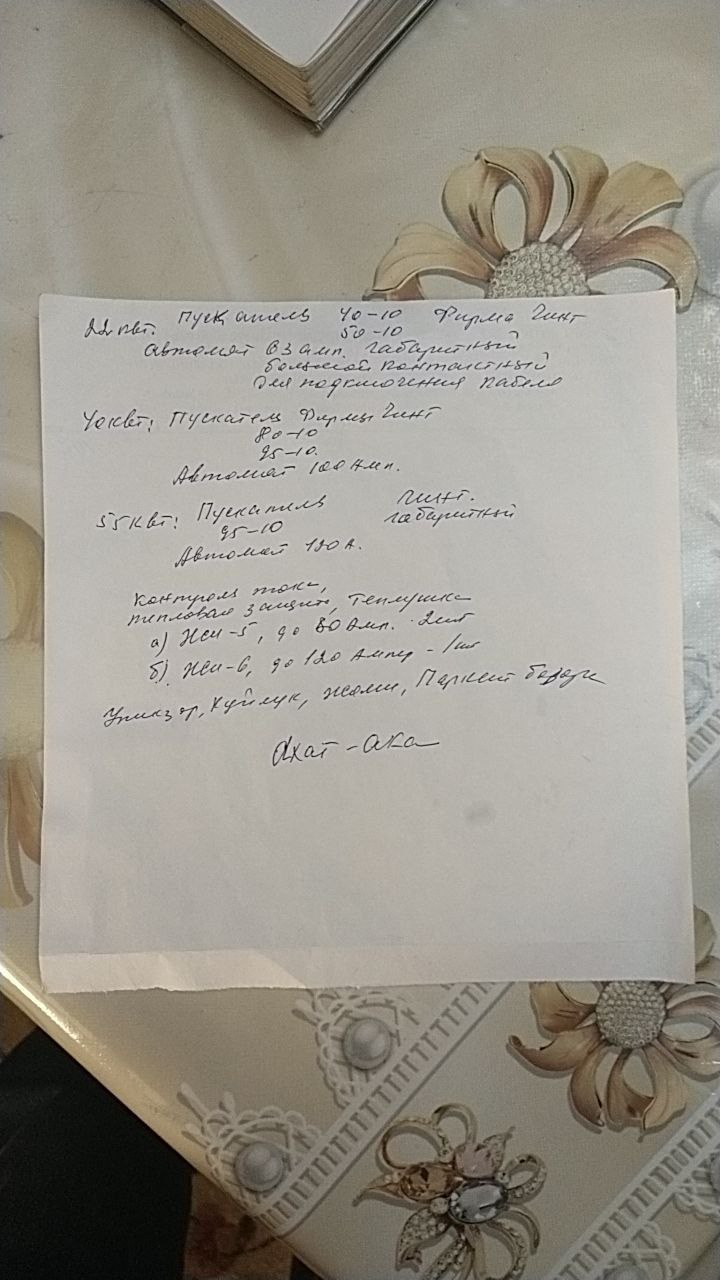 22 квт. Пускатель 40-10 Фирма Чинт
50-10
автомат 63 амп. габаритный
большой контактный
для подключения кабеля
40квт: Пускатель Фирмы Чинт
80-10
95-10.
Автомат 100 Амп.
55квт: Пускатель Чинт.
95-10 габаритный
Автомат 120 А.
контроль тока,
тепловая защита, теплушка
а) -5, до 80 Амп. 2шт
б) -6, до 120 Ампер - 1шт
Урикзор, Куйлук, Жоми, Паркент базари
Ахат - ака